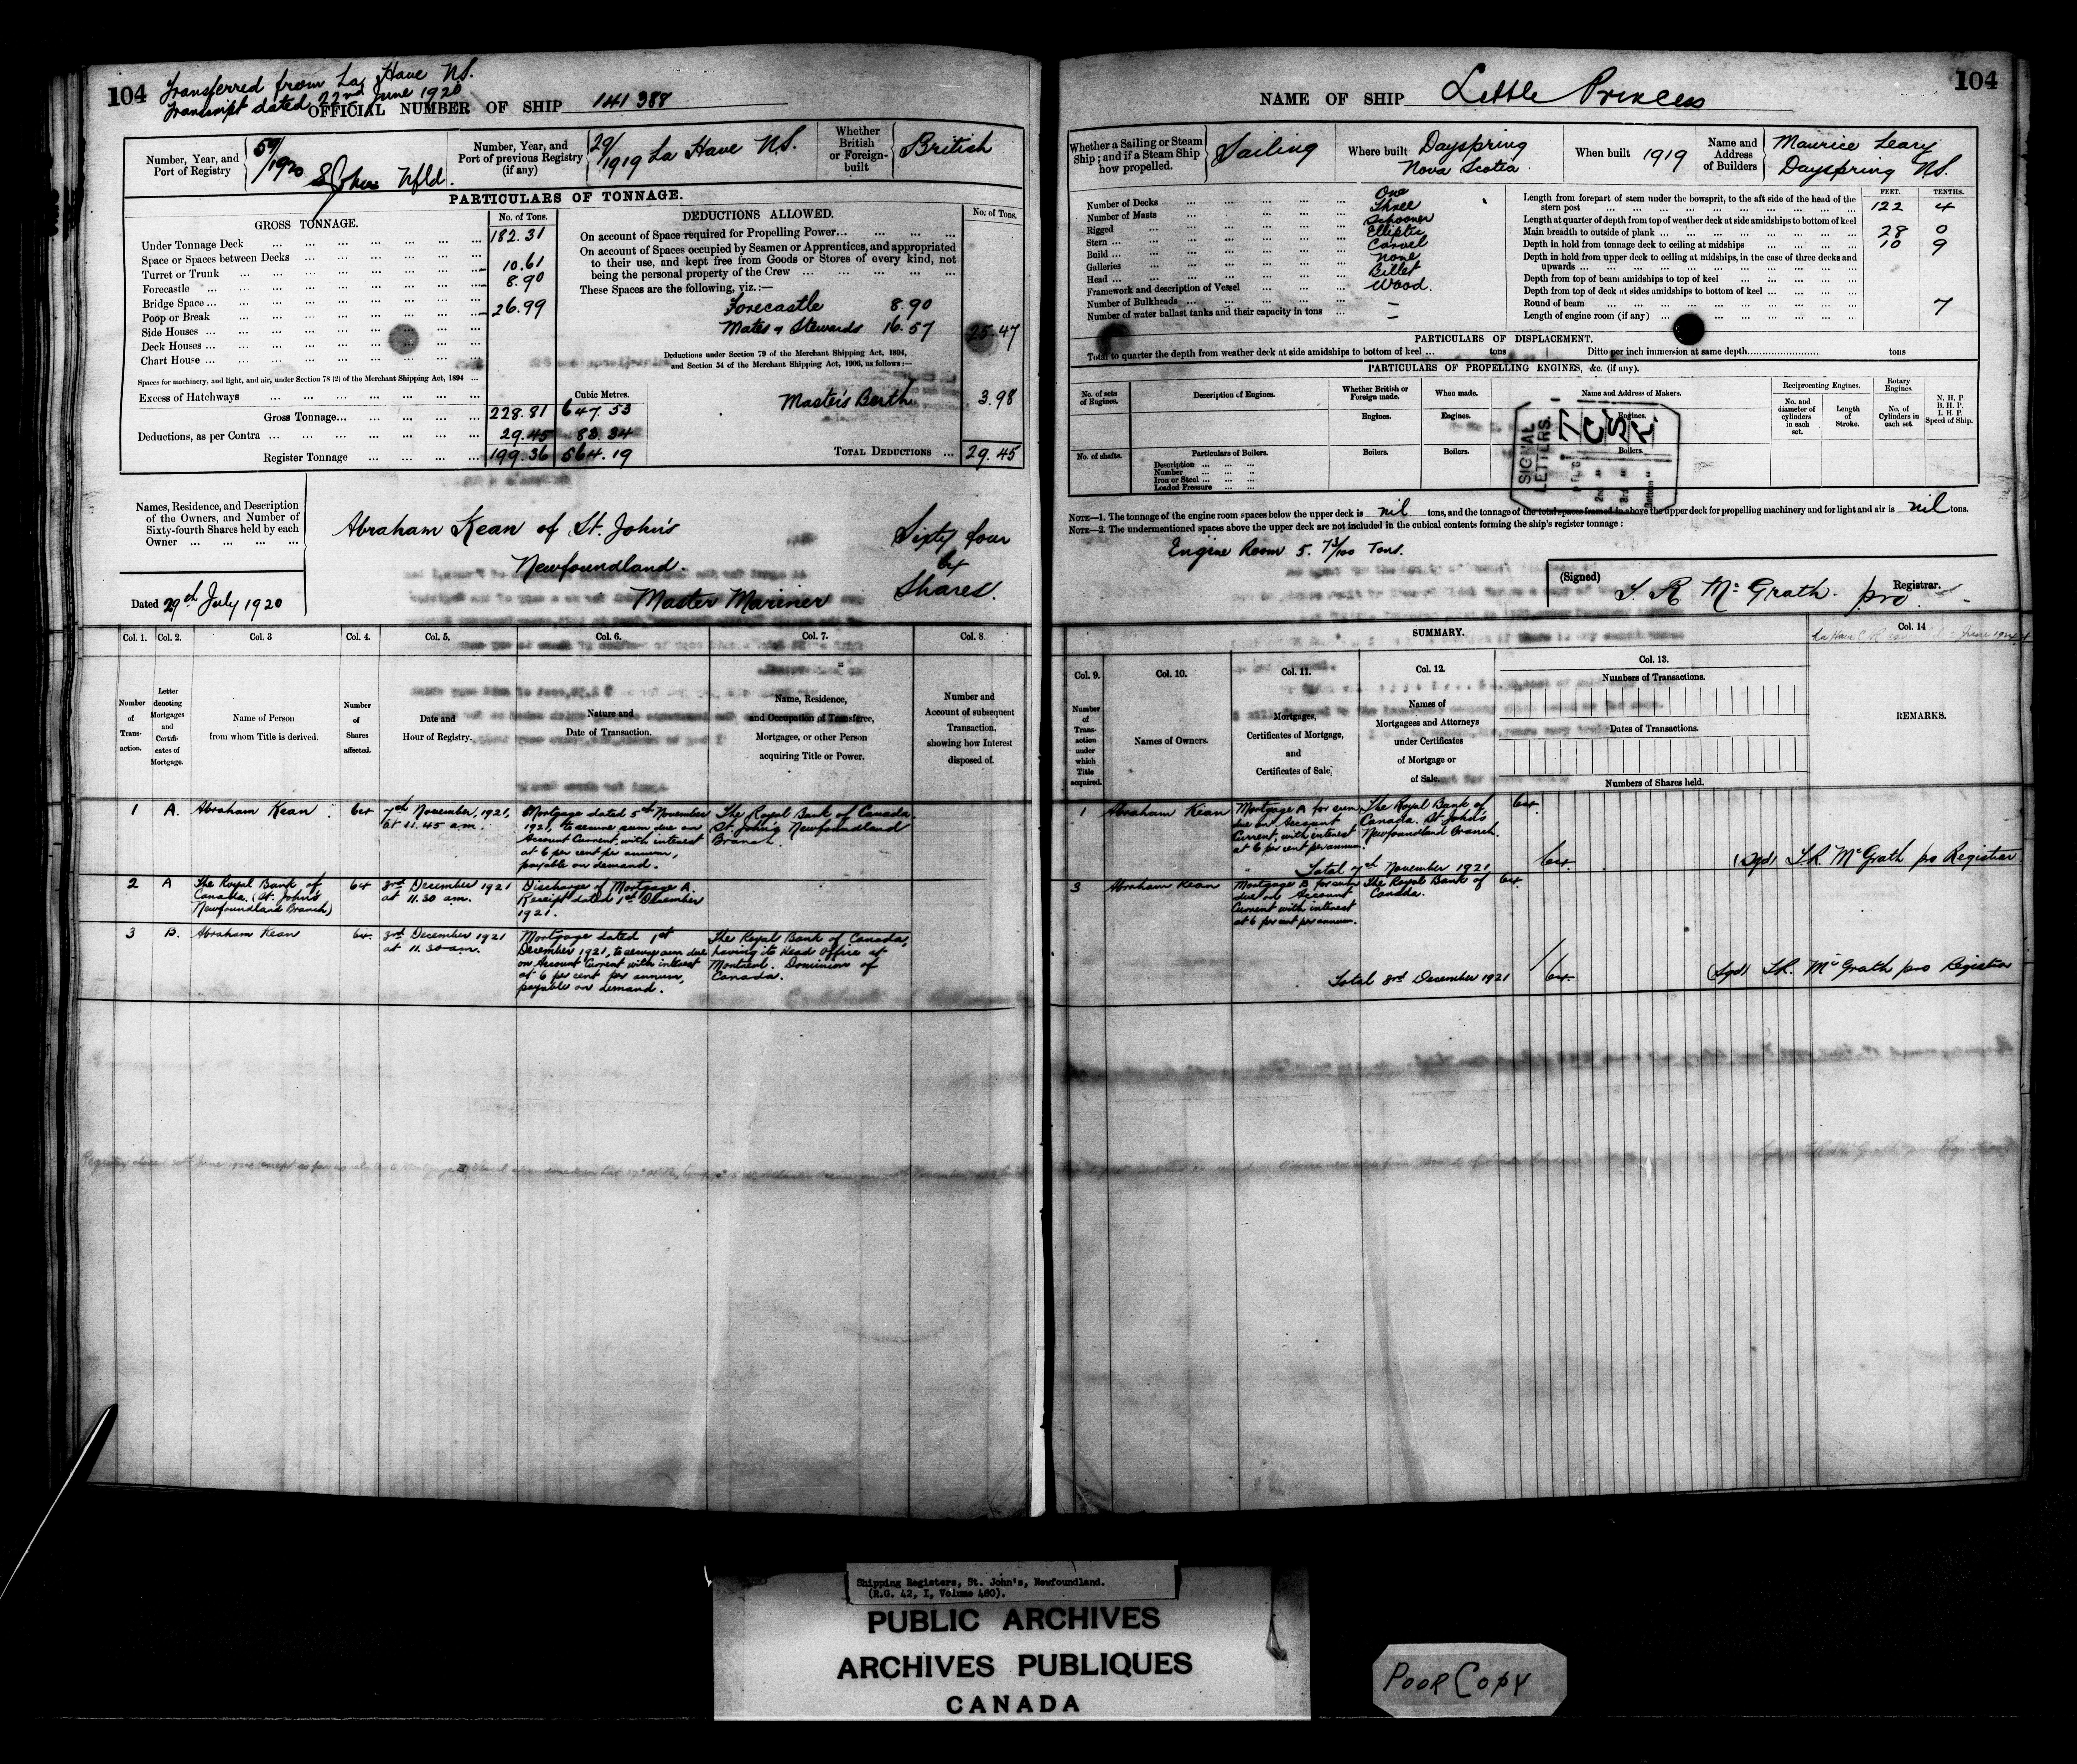 104
Transferred from La Have N.S.
Transcript dated 22nd June 1920
OFFICIAL NUMBER OF SHIP 141388
Number, Year, and Port of Registry
59/1920 St Johns Nfld.
Number, Year, and Port of previous Registry (if any)
29/1919 La Have N.S.
Whether British or Foreign-built
British
PARTICULARS OF TONNAGE.
GROSS TONNAGE.
No. of Tons.
Under Tonnage Deck ... 182.31
Space or Spaces between Decks ...
Turret or Trunk ... 10.61
Forecastle ... 8.90
Bridge Space ...
Poop or Break ... 26.99
Side Houses ...
Deck Houses ...
Chart House ...
Spaces for machinery, and light, and air, under Section 78 (2) of the Merchant Shipping Act, 1894 ...
Excess of Hatchways ...
Cubic Metres.
Gross Tonnage... 228.81 647.53
Deductions, as per Contra ... 29.45 83.34
Register Tonnage ... 199.36 564.19
DEDUCTIONS ALLOWED.
No. of Tons.
On account of Space required for Propelling Power...
On account of Spaces occupied by Seamen or Apprentices, and appropriated
to their use, and kept free from Goods or Stores of every kind, not
being the personal property of the Crew ...
These Spaces are the following, viz.:—
Forecastle 8.90
Mates & Stewards 16.57 25.47
Deductions under Section 79 of the Merchant Shipping Act, 1894,
and Section 54 of the Merchant Shipping Act, 1906, as follows:—
Master's Berth 3.98
TOTAL DEDUCTIONS ... 29.45
Names, Residence, and Description
of the Owners, and Number of
Sixty-fourth Shares held by each
Owner ...
Abraham Kean of St. John's
Newfoundland.
Master Mariner
Sixty four
64
Shares.
Dated 29th July 1920
Col. 1. Col. 2. Col. 3 Col. 4. Col. 5. Col. 6. Col. 7. Col. 8
Number of Transaction.
Letter denoting Mortgages and Certificates of Mortgage.
Name of Person from whom Title is derived.
Number of Shares affected.
Date and Hour of Registry.
Nature and Date of Transaction.
Name, Residence, and Occupation of Transferee, Mortgagee, or other Person acquiring Title or Power.
Number and Account of subsequent Transaction, showing how Interest disposed of.
1 A. Abraham Kean. 64 7th November, 1921, at 11.45 a.m.
Mortgage dated 5th November
1921, to secure sum due on
Account Current, with interest
at 6 per cent per annum,
payable on demand.
The Royal Bank of Canada.
St. John's Newfoundland
Branch.
2 A The Royal Bank of
Canada. (St. John's
Newfoundland Branch)
64 3rd December 1921
at 11.30 am.
Discharge of Mortgage A.
Receipt dated 1st December
1921.
3 B. Abraham Kean 64. 3rd December 1921
at 11.30 am.
Mortgage dated 1st
December, 1921, to secure sum due
on Account Current with interest
at 6 per cent per annum,
payable on demand.
The Royal Bank of Canada,
having its Head Office at
Montreal. Dominion of
Canada.
104
NAME OF SHIP Little Princess
Whether a Sailing or Steam Ship; and if a Steam Ship how propelled.
Sailing
Where built Dayspring
Nova Scotia
When built 1919
Name and Address of Builders
Maurice Leary
Dayspring N.S.
Number of Decks ... One
Number of Masts ... Three
Rigged ... Schooner
Stern ... Elliptic
Build ... Carvel
Galleries ... None
Head ... Billet
Framework and description of Vessel ... Wood.
Number of Bulkheads ... —
Number of water ballast tanks and their capacity in tons ... —
FEET. TENTHS.
Length from forepart of stem under the bowsprit, to the aft side of the head of the
stern post ... 122 4
Length at quarter of depth from top of weather deck at side amidships to bottom of keel
Main breadth to outside of plank ... 28 0
Depth in hold from tonnage deck to ceiling at midships ... 10 9
Depth in hold from upper deck to ceiling at midships, in the case of three decks and
upwards ...
Depth from top of beam amidships to top of keel ...
Depth from top of deck at sides amidships to bottom of keel ...
Round of beam ... 7
Length of engine room (if any) ...
PARTICULARS OF DISPLACEMENT.
Total to quarter the depth from weather deck at side amidships to bottom of keel ... tons
Ditto per inch immersion at same depth... tons
PARTICULARS OF PROPELLING ENGINES, &c. (if any).
No. of sets of Engines.
Description of Engines.
Whether British or Foreign made.
When made.
Name and Address of Makers.
Reciprocating Engines.
No. and diameter of cylinders in each set.
Length of Stroke.
Rotary Engines.
No. of Cylinders in each set.
N. H. P.
B. H. P.
I. H. P.
Speed of Ship.
Engines. Engines. Engines.
No. of shafts.
Particulars of Boilers.
Boilers. Boilers. Boilers.
Description ...
Number ...
Iron or Steel ...
Loaded Pressure ...
SIGNAL LETTERS.
NOTE—1. The tonnage of the engine room spaces below the upper deck is nil tons, and the tonnage of the total spaces framed in above the upper deck for propelling machinery and for light and air is nil tons.
NOTE—2. The undermentioned spaces above the upper deck are not included in the cubical contents forming the ship's register tonnage:
Engine Room 5.73/100 Tons.
(Signed) S. R. McGrath. pro Registrar.
SUMMARY.
Col. 14
Col. 9. Col. 10. Col. 11. Col. 12. Col. 13.
Number of Transaction under which Title acquired.
Names of Owners.
Mortgages, Certificates of Mortgage, and Certificates of Sale
Names of Mortgagees and Attorneys under Certificates of Mortgage or of Sale.
Numbers of Transactions.
Dates of Transactions.
Numbers of Shares held.
REMARKS.
1 Abraham Kean
Mortgage A for sum
due on Account
Current, with interest
at 6 per cent per annum.
The Royal Bank of
Canada. St John's
Newfoundland Branch.
64
Total 7th November 1921, 64
(Sgd) S.R. McGrath pro Registrar
3 Abraham Kean
Mortgage B for sum
due on Account
Current with interest
at 6 per cent per annum.
The Royal Bank of
Canada.
64
Total 3rd December 1921 64
(Sgd) S.R. McGrath pro Registrar
Shipping Registers, St. John's, Newfoundland.
(R.G. 42, I, Volume 480).
PUBLIC ARCHIVES
ARCHIVES PUBLIQUES
CANADA
POOR COPY